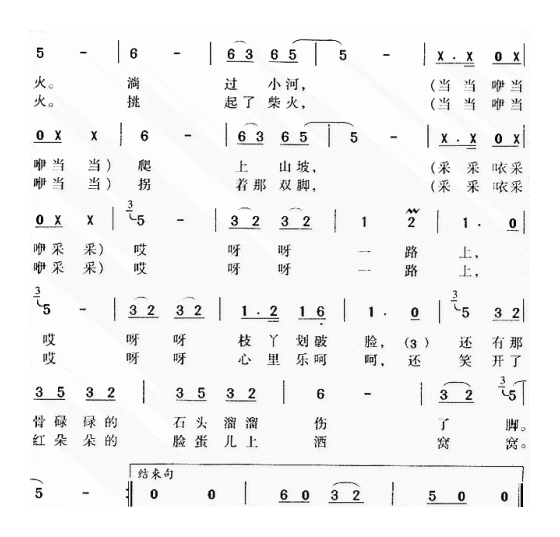 5 - | 6 - | 6 3 6 5 | 5 - | X . X 0 X |
火。 淌 过 小河, (当 当 咿当
火。 挑 起了 柴火, (当 当 咿当
0 X X | 6 - | 6 3 6 5 | 5 - | X . X 0 X |
咿当 当) 爬 上 山坡, (采 采 咴采
咿当 当) 拐 着那 双脚, (采 采 咴采
0 X X | 3 5 - | 3 2 3 2 | 1 2 | 1 . 0 |
咿采 采) 哎 呀 呀 一 路 上,
咿采 采) 哎 呀 呀 一 路 上,
3 5 - | 3 2 3 2 | 1 . 2 1 6 | 1 . 0 | 3 5 3 2 |
哎 呀 呀 枝 丫 划破 脸, (3) 还 有那
哎 呀 呀 心 里 乐呵 呵, 还 笑 开了
3 5 3 2 | 3 5 3 2 | 6 - | 3 2 3 5 |
骨碌 碌的 石头 溜溜 伤 了 脚。
红朵 朵的 脸蛋 儿上 洒 窝 窝。
结束句
5 - :‖ 0 0 | 6 0 3 2 | 5 0 0 ‖